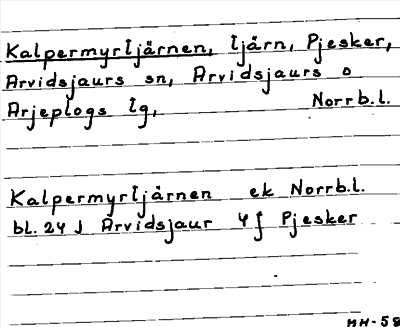 Kalpermyrtjärnen, tjärn, Pjesker,
Arvidsjaurs sn, Arvidsjaurs o
Arjeplogs tg, Norrb.l.
Kalpermyrtjärnen ek Norrb.l.
bl. 24 J Arvidsjaur 4 f Pjesker
HH-58